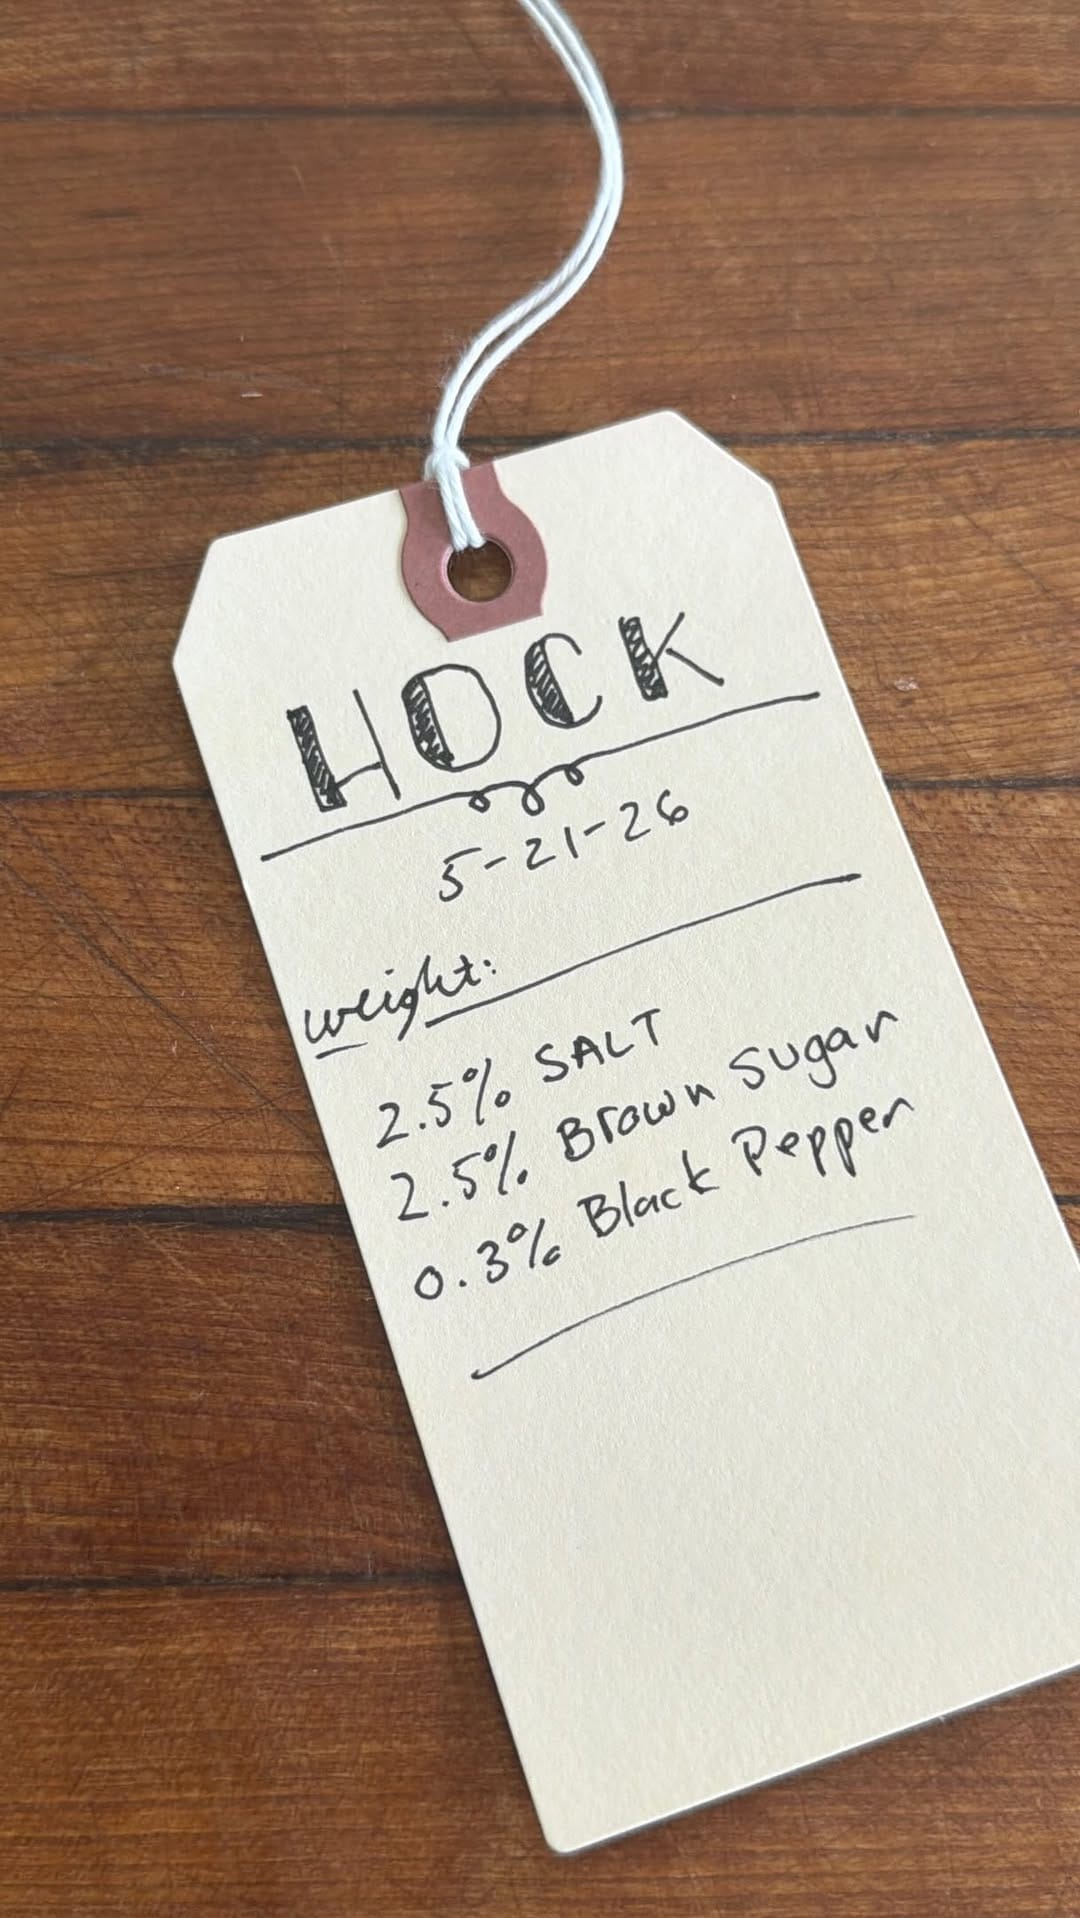 HOCK
5-21-26
weight:
2.5% SALT
2.5% Brown Sugar
0.3% Black Pepper